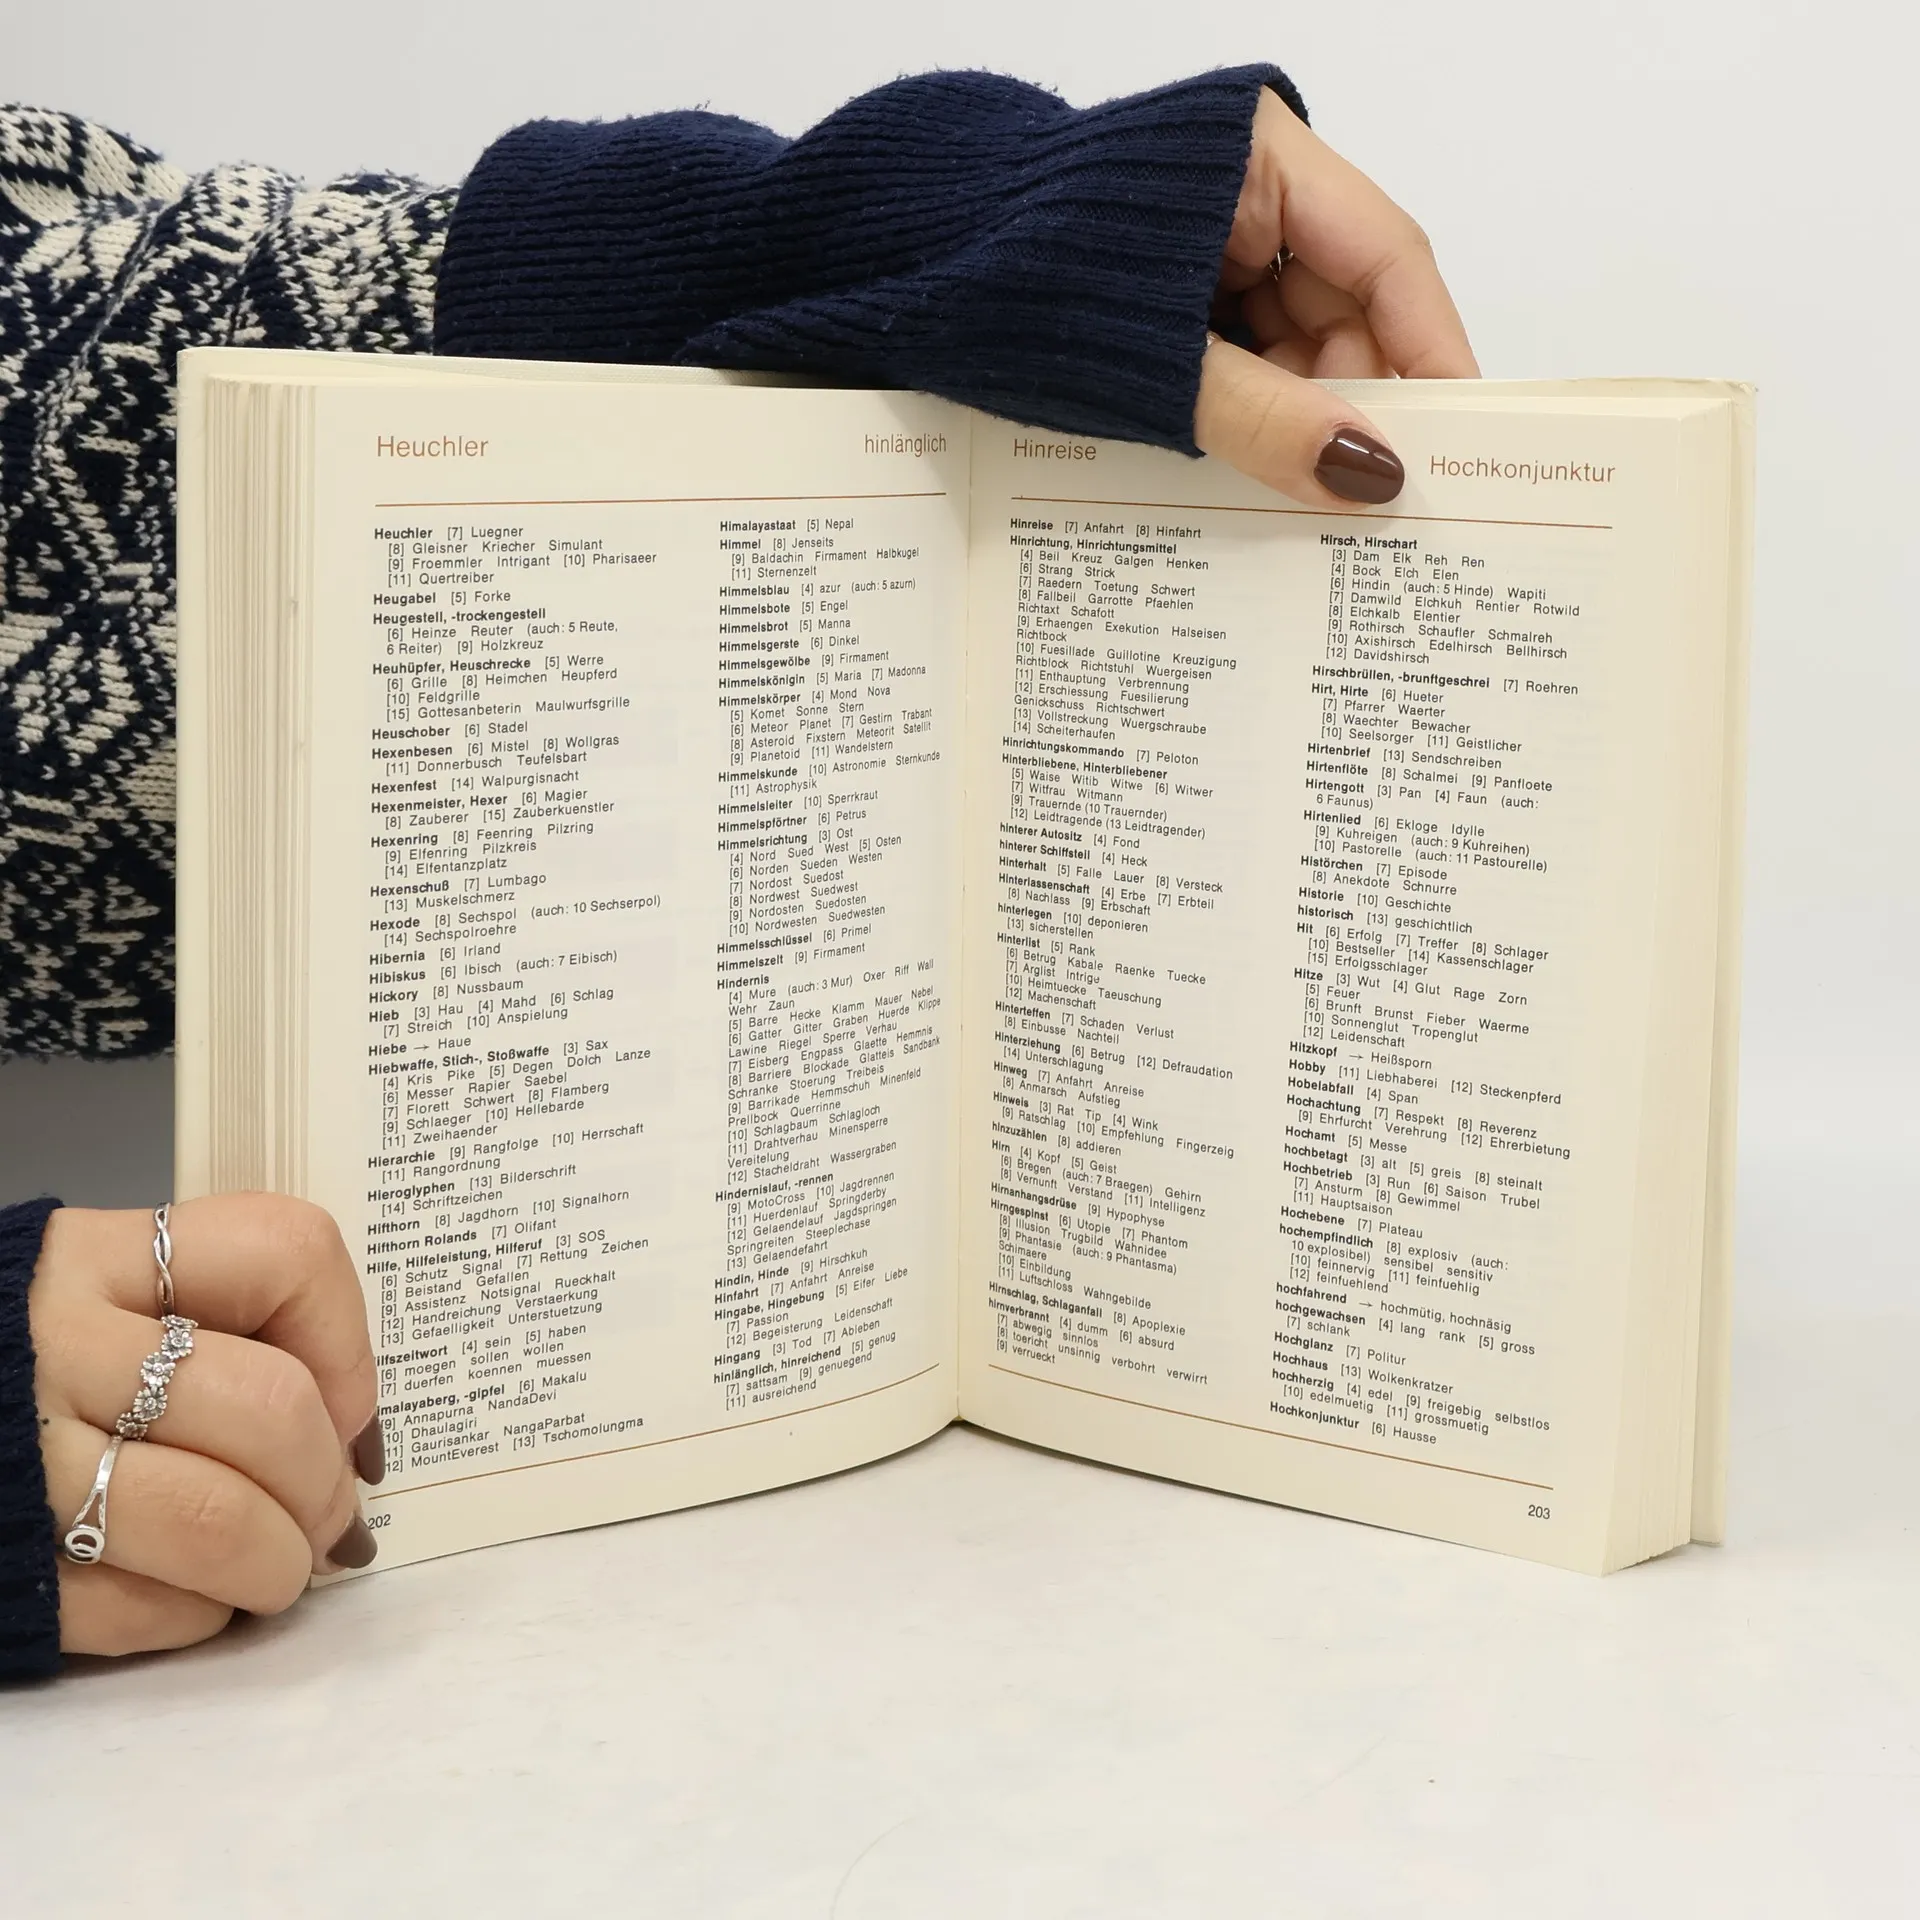 Heuchler
hinlänglich
Heuchler [7] Luegner
[8] Gleisner Kriecher Simulant
[9] Froemmler Intrigant [10] Pharisaeer
[11] Quertreiber
Heugabel [5] Forke
Heugestell, -trockengestell
[6] Heinze Reuter (auch: 5 Reute,
6 Reiter) [9] Holzkreuz
Heuhüpfer, Heuschrecke [5] Werre
[6] Grille [8] Heimchen Heupferd
[10] Feldgrille
[15] Gottesanbeterin Maulwurfsgrille
Heuschober [6] Stadel
Hexenbesen [6] Mistel [8] Wollgras
[11] Donnerbusch Teufelsbart
Hexenfest [14] Walpurgisnacht
Hexenmeister, Hexer [6] Magier
[8] Zauberer [15] Zauberkuenstler
Hexenring [8] Feenring Pilzring
[9] Elfenring Pilzkreis
[14] Elfentanzplatz
Hexenschuß [7] Lumbago
[13] Muskelschmerz
Hexode [8] Sechspol (auch: 10 Sechserpol)
[14] Sechspolroehre
Hibernia [6] Irland
Hibiskus [6] Ibisch (auch: 7 Eibisch)
Hickory [8] Nussbaum
Hieb [3] Hau [4] Mahd [6] Schlag
[7] Streich [10] Anspielung
Hiebe → Haue
Hiebwaffe, Stich-, Stoßwaffe [3] Sax
[4] Kris Pike [5] Degen Dolch Lanze
[6] Messer Rapier Saebel
[7] Florett Schwert [8] Flamberg
[9] Schlaeger [10] Hellebarde
[11] Zweihaender
Hierarchie [9] Rangfolge [10] Herrschaft
[11] Rangordnung
Hieroglyphen [13] Bilderschrift
[14] Schriftzeichen
Hifthorn [8] Jagdhorn [10] Signalhorn
Hifthorn Rolands [7] Olifant
Hilfe, Hilfeleistung, Hilferuf [3] SOS
[6] Schutz Signal [7] Rettung Zeichen
[8] Beistand Gefallen
[9] Assistenz Notsignal Rueckhalt
[12] Handreichung Verstaerkung
[13] Gefaelligkeit Unterstuetzung
ilfszeitwort [4] sein [5] haben
[6] moegen sollen wollen
[7] duerfen koennen muessen
imalayaberg, -gipfel [6] Makalu
[9] Annapurna NandaDevi
10] Dhaulagiri
11] Gaurisankar NangaParbat
12] MountEverest [13] Tschomolungma
Himalayastaat [5] Nepal
Himmel [8] Jenseits
[9] Baldachin Firmament Halbkugel
[11] Sternenzelt
Himmelsblau [4] azur (auch: 5 azurn)
Himmelsbote [5] Engel
Himmelsbrot [5] Manna
Himmelsgerste [6] Dinkel
Himmelsgewölbe [9] Firmament
Himmelskönigin [5] Maria [7] Madonna
Himmelskörper [4] Mond Nova
[5] Komet Sonne Stern
[6] Meteor Planet [7] Gestirn Trabant
[8] Asteroid Fixstern Meteorit Satellit
[9] Planetoid [11] Wandelstern
Himmelskunde [10] Astronomie Sternkunde
[11] Astrophysik
Himmelsleiter [10] Sperrkraut
Himmelspförtner [6] Petrus
Himmelsrichtung [3] Ost
[4] Nord Sued West [5] Osten
[6] Norden Sueden Westen
[7] Nordost Suedost
[8] Nordwest Suedwest
[9] Nordosten Suedosten
[10] Nordwesten Suedwesten
Himmelsschlüssel [6] Primel
Himmelszelt [9] Firmament
Hindernis
[4] Mure (auch: 3 Mur) Oxer Riff Wall
Wehr Zaun
[5] Barre Hecke Klamm Mauer Nebel
[6] Gatter Gitter Graben Huerde Klippe
Lawine Riegel Sperre Verhau
[7] Eisberg Engpass Glaette Hemmnis
[8] Barriere Blockade Glatteis Sandbank
Schranke Stoerung Treibeis
[9] Barrikade Hemmschuh Minenfeld
Prellbock Querrinne
[10] Schlagbaum Schlagloch
[11] Drahtverhau Minensperre
Vereitelung
[12] Stacheldraht Wassergraben
Hindernislauf, -rennen
[9] MotoCross [10] Jagdrennen
[11] Huerdenlauf Springderby
[12] Gelaendelauf Jagdspringen
Springreiten Steeplechase
[13] Gelaendefahrt
Hindin, Hinde [9] Hirschkuh
Hinfahrt [7] Anfahrt Anreise
Hingabe, Hingebung [5] Eifer Liebe
[7] Passion
[12] Begeisterung Leidenschaft
Hingang [3] Tod [7] Ableben
hinlänglich, hinreichend [5] genug
[7] sattsam [9] genuegend
[11] ausreichend
202
Hinreise
Hochkonjunktur
Hinreise [7] Anfahrt [8] Hinfahrt
Hinrichtung, Hinrichtungsmittel
[4] Beil Kreuz Galgen Henken
[6] Strang Strick
[7] Raedern Toetung Schwert
[8] Fallbeil Garrotte Pfaehlen
Richtaxt Schafott
[9] Erhaengen Exekution Halseisen
Richtbock
[10] Fuesillade Guillotine Kreuzigung
Richtblock Richtstuhl Wuergeisen
[11] Enthauptung Verbrennung
[12] Erschiessung Fuesilierung
Genickschuss Richtschwert
[13] Vollstreckung Wuergschraube
[14] Scheiterhaufen
Hinrichtungskommando [7] Peloton
Hinterbliebene, Hinterbliebener
[5] Waise Witib Witwe [6] Witwer
[7] Witfrau Witmann
[9] Trauernde (10 Trauernder)
[12] Leidtragende (13 Leidtragender)
hinterer Autositz [4] Fond
hinterer Schiffsteil [4] Heck
Hinterhalt [5] Falle Lauer [8] Versteck
Hinterlassenschaft [4] Erbe [7] Erbteil
[8] Nachlass [9] Erbschaft
hinterlegen [10] deponieren
[13] sicherstellen
Hinterlist [5] Rank
[6] Betrug Kabale Raenke Tuecke
[7] Arglist Intrige
[10] Heimtuecke Taeuschung
[12] Machenschaft
Hintertreffen [7] Schaden Verlust
[8] Einbusse Nachteil
Hinterziehung [6] Betrug [12] Defraudation
[14] Unterschlagung
Hinweg [7] Anfahrt Anreise
[8] Anmarsch Aufstieg
Hinweis [3] Rat Tip [4] Wink
[9] Ratschlag [10] Empfehlung Fingerzeig
hinzuzählen [8] addieren
Hirn [4] Kopf [5] Geist
[6] Bregen (auch: 7 Braegen) Gehirn
[8] Vernunft Verstand [11] Intelligenz
Hirnanhangsdrüse [9] Hypophyse
Hirngespinst [6] Utopie [7] Phantom
[8] Illusion Trugbild Wahnidee
[9] Phantasie (auch: 9 Phantasma)
Schimaere
[10] Einbildung
[11] Luftschloss Wahngebilde
Hirnschlag, Schlaganfall [8] Apoplexie
hirnverbrannt [4] dumm [6] absurd
[7] abwegig sinnlos
[8] toericht unsinnig verbohrt verwirrt
[9] verrueckt
Hirsch, Hirschart
[3] Dam Elk Reh Ren
[4] Bock Elch Elen
[6] Hindin (auch: 5 Hinde) Wapiti
[7] Damwild Elchkuh Rentier Rotwild
[8] Elchkalb Elentier
[9] Rothirsch Schaufler Schmalreh
[10] Axishirsch Edelhirsch Bellhirsch
[12] Davidshirsch
Hirschbrüllen, -brunftgeschrei [7] Roehren
Hirt, Hirte [6] Hueter
[7] Pfarrer Waerter
[8] Waechter Bewacher
[10] Seelsorger [11] Geistlicher
Hirtenbrief [13] Sendschreiben
Hirtenflöte [8] Schalmei [9] Panfloete
Hirtengott [3] Pan [4] Faun (auch:
6 Faunus)
Hirtenlied [6] Ekloge Idylle
[9] Kuhreigen (auch: 9 Kuhreihen)
[10] Pastorelle (auch: 11 Pastourelle)
Histörchen [7] Episode
[8] Anekdote Schnurre
Historie [10] Geschichte
historisch [13] geschichtlich
Hit [6] Erfolg [7] Treffer [8] Schlager
[10] Bestseller [14] Kassenschlager
[15] Erfolgsschlager
Hitze [3] Wut [4] Glut Rage Zorn
[5] Feuer
[6] Brunft Brunst Fieber Waerme
[10] Sonnenglut Tropenglut
[12] Leidenschaft
Hitzkopf → Heißsporn
Hobby [11] Liebhaberei [12] Steckenpferd
Hobelabfall [4] Span
Hochachtung [7] Respekt [8] Reverenz
[9] Ehrfurcht Verehrung [12] Ehrerbietung
Hochamt [5] Messe
hochbetagt [3] alt [5] greis [8] steinalt
Hochbetrieb [3] Run [6] Saison Trubel
[7] Ansturm [8] Gewimmel
[11] Hauptsaison
Hochebene [7] Plateau
hochempfindlich [8] explosiv (auch:
10 explosibel) sensibel sensitiv
[10] feinnervig [11] feinfuehlig
[12] feinfuehlend
hochfahrend → hochmütig, hochnäsig
hochgewachsen [4] lang rank [5] gross
[7] schlank
Hochglanz [7] Politur
Hochhaus [13] Wolkenkratzer
hochherzig [4] edel [9] freigebig selbstlos
[10] edelmuetig [11] grossmuetig
Hochkonjunktur [6] Hausse
203